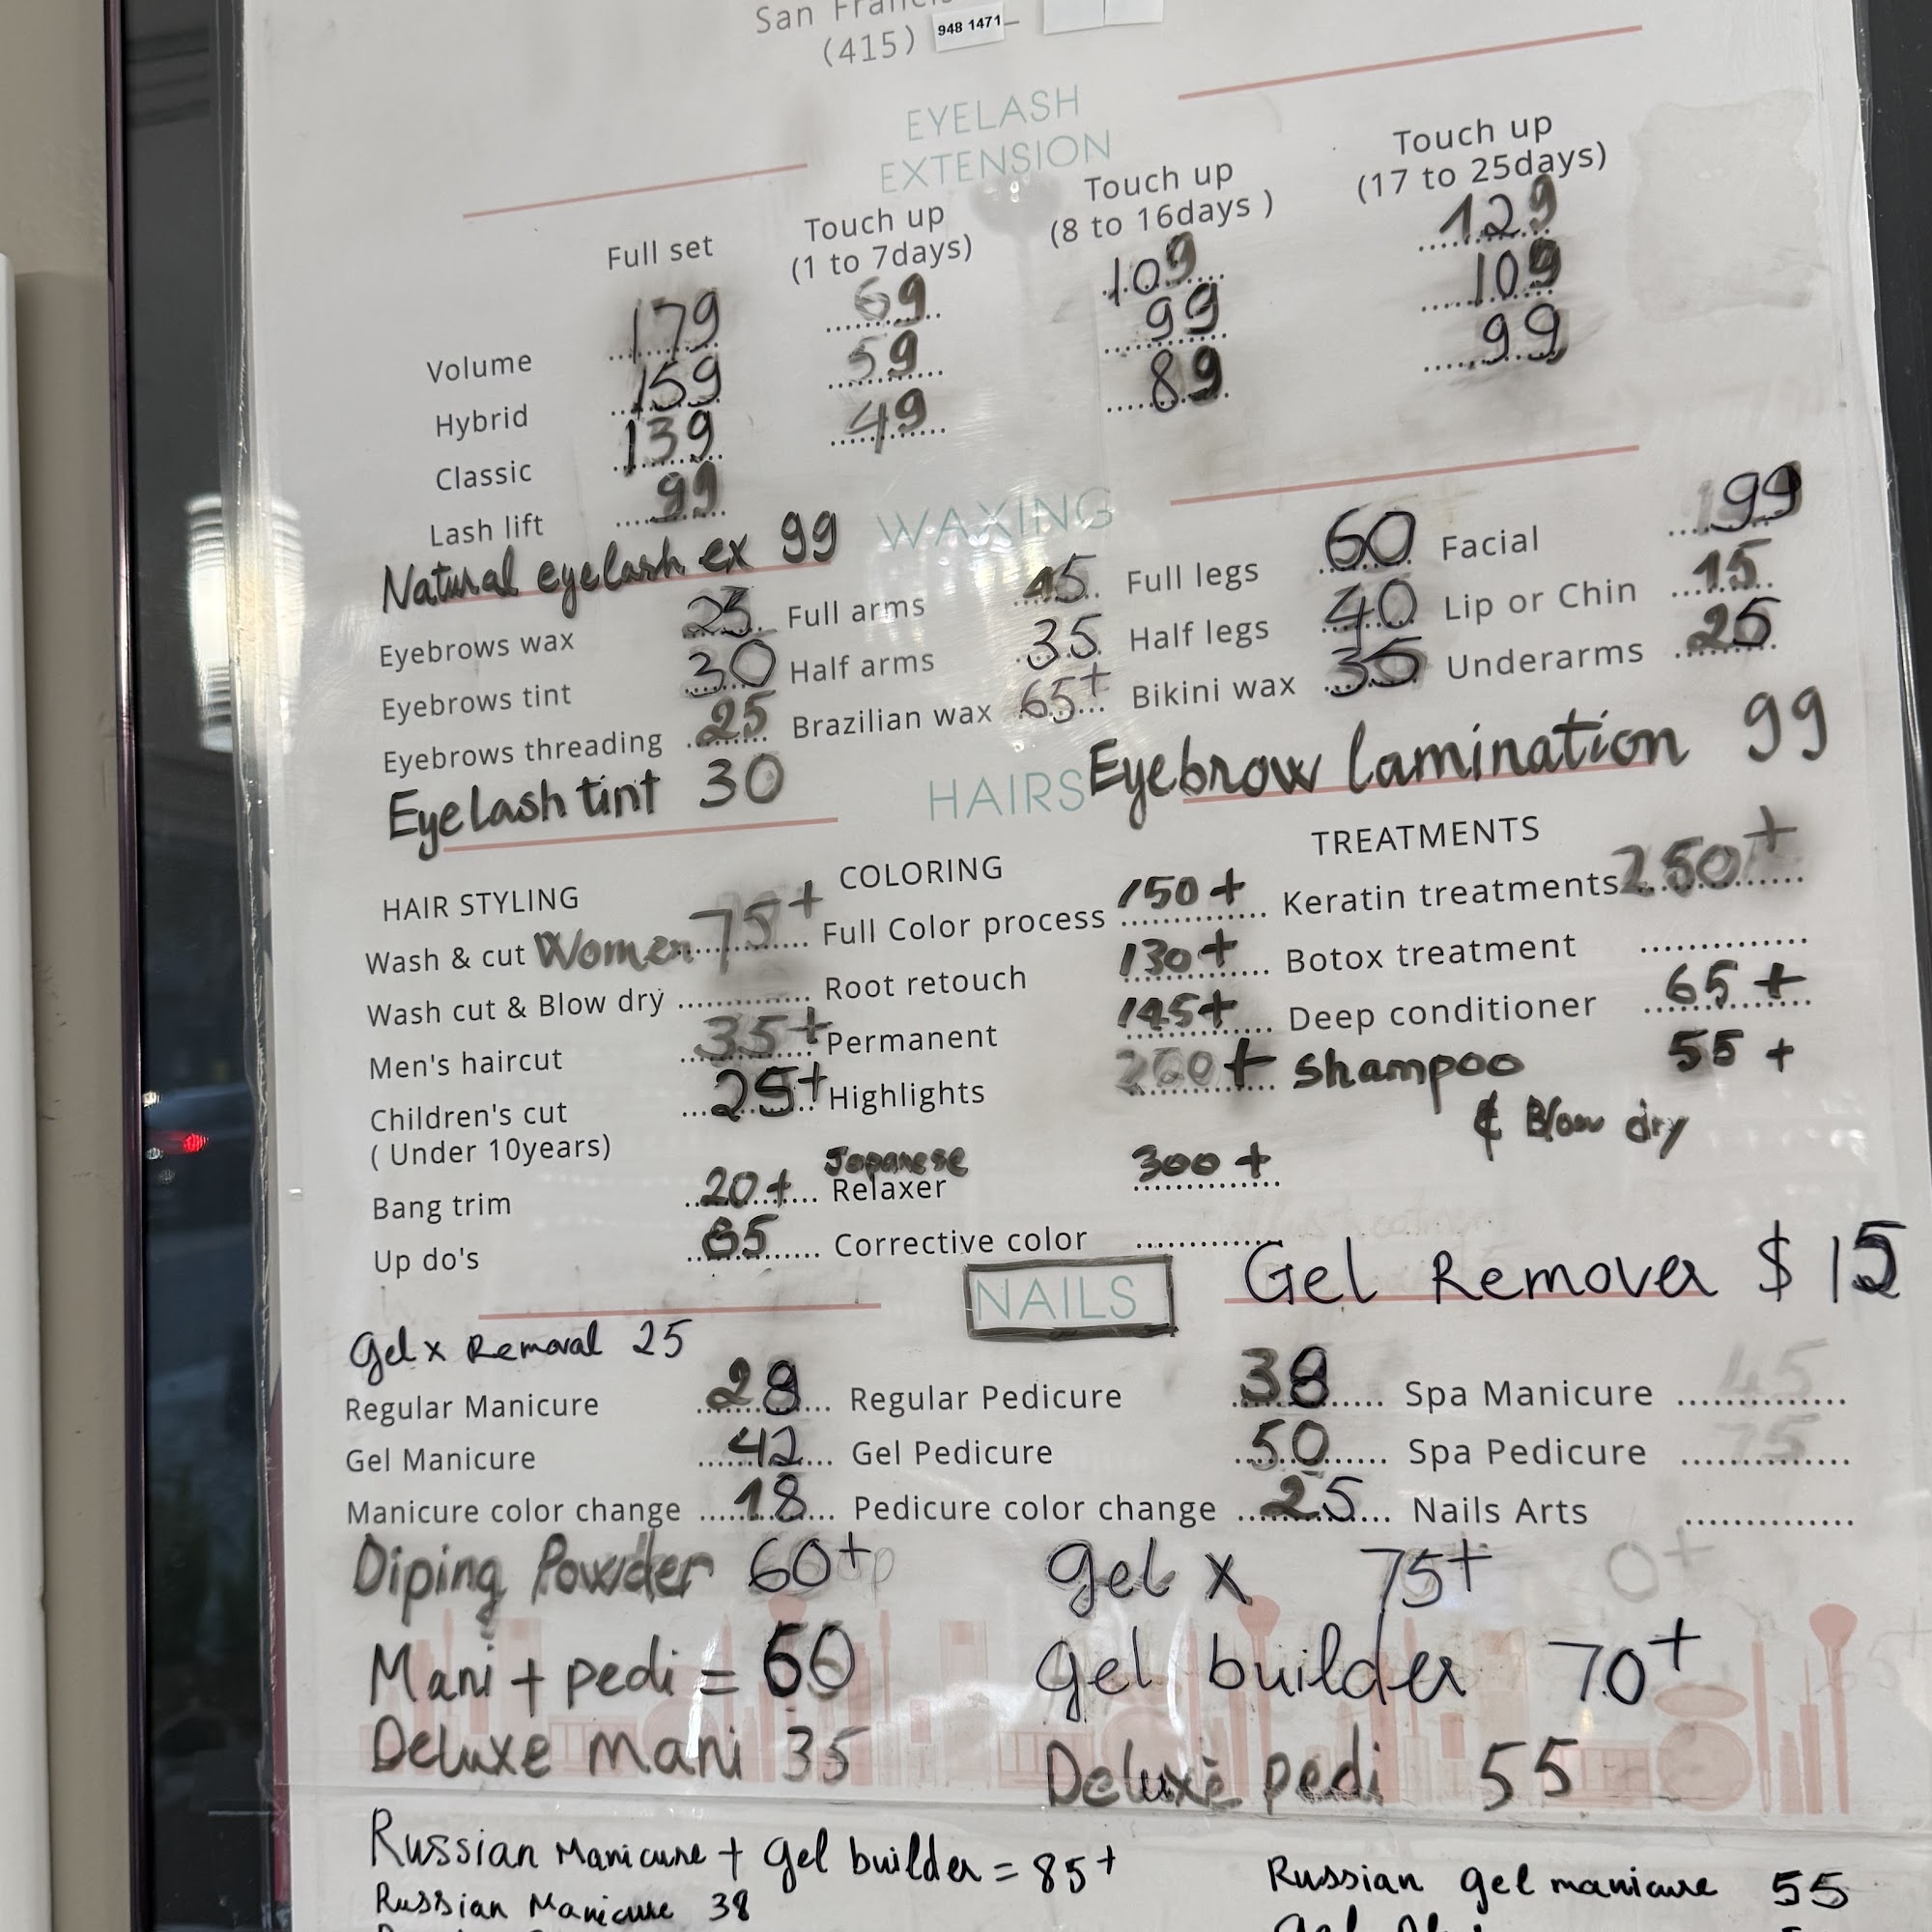 San Franci
(415) 948 1471
EYELASH
EXTENSION
Full set
Touch up
(1 to 7days)
Touch up
(8 to 16days )
Touch up
(17 to 25days)
Volume 179 69 109 129
Hybrid 159 59 99 109
Classic 139 49 89 99
Lash lift 99
Natural eyelash ex 99
WAXING
Eyebrows wax 25 Full arms 45 Full legs 60 Facial 99
Eyebrows tint 30 Half arms 35 Half legs 40 Lip or Chin 15
Eyebrows threading 25 Brazilian wax 65+ Bikini wax 35 Underarms 25
Eyelash tint 30
HAIRS
Eyebrow lamination 99
HAIR STYLING COLORING TREATMENTS
Wash & cut Women 75+ Full Color process 150+ Keratin treatments 250+
Wash cut & Blow dry Root retouch 130+ Botox treatment
Men's haircut 35+ Permanent 145+ Deep conditioner 65+
Children's cut 25+ Highlights + Shampoo 55+
( Under 10years) & Blow dry
Bang trim 20+ Japanese Relaxer 300+
Up do's 85 Corrective color
NAILS
Gel Remover $15
Gel x Removal 25
Regular Manicure 28 Regular Pedicure 38 Spa Manicure 45
Gel Manicure 42 Gel Pedicure 50 Spa Pedicure 75
Manicure color change 18 Pedicure color change 25 Nails Arts
Diping Powder 60+ gel x 75+
Mani + pedi = 60 gel builder 70+
Deluxe mani 35 Deluxe pedi 55
Russian Manicure + gel builder = 85+
Russian gel manicure 55
Russian Manicure 38